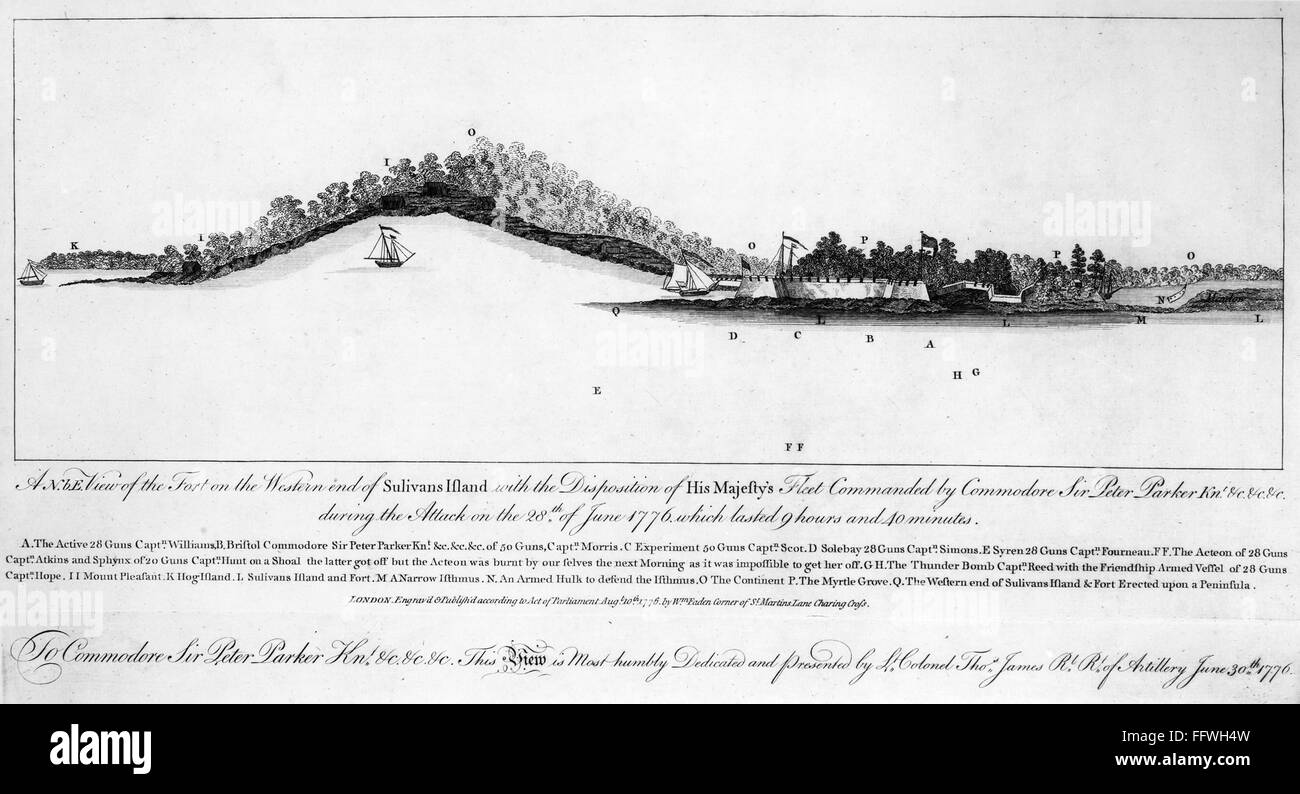 O
I
I I
K
O
P
P
O
N
Meadow
Q
L
L
M
L
D
C
B
A
H G
E
F F
A N.b.E. View of the Fort on the Western end of Sulivans Iſland with the Disposition of His Majeſty's Fleet Commanded by Commodore Sir Peter Parker Knt. &c. &c. &c.
during the Attack on the 28th. of June 1776. which lasted 9 hours and 40 minutes.
A. The Active 28 Guns Captn. Williams, B, Briſtol Commodore Sir Peter Parker Knt. &c. &c. &c. of 50 Guns, Captn. Morris. C Experiment 50 Guns Captn. Scot. D Solebay 28 Guns Captn. Simons. E Syren 28 Guns Captn. Fourneau. F F. The Acteon of 28 Guns
Captn. Atkins and Sphynx of 20 Guns Captn. Hunt on a Shoal the latter got off but the Acteon was burnt by our ſelves the next Morning as it was impoſſible to get her off. G H. The Thunder Bomb Captn. Reed with the Friendſhip Armed Veſſel of 28 Guns
Captn. Hope. I I Mount Pleaſant. K Hog Iſland. L Sulivans Iſland and Fort. M A Narrow Iſthmus. N. An Armed Hulk to defend the Iſthmus. O The Continent P. The Myrtle Grove. Q. The Weſtern end of Sulivans Iſland & Fort Erected upon a Peninſula.
LONDON. Engrav'd & Publiſh'd according to Act of Parliament Augt. 10th. 1776. by Wm. Faden Corner of St. Martins Lane Charing Croſs.
To Commodore Sir Peter Parker Knt. &c. &c. &c. This View is Most humbly Dedicated and presented by Lt. Colonel Thos. James Rl. Rt. of Artillery June 30th. 1776.
alamy
Image ID: FFWH4W
www.alamy.com